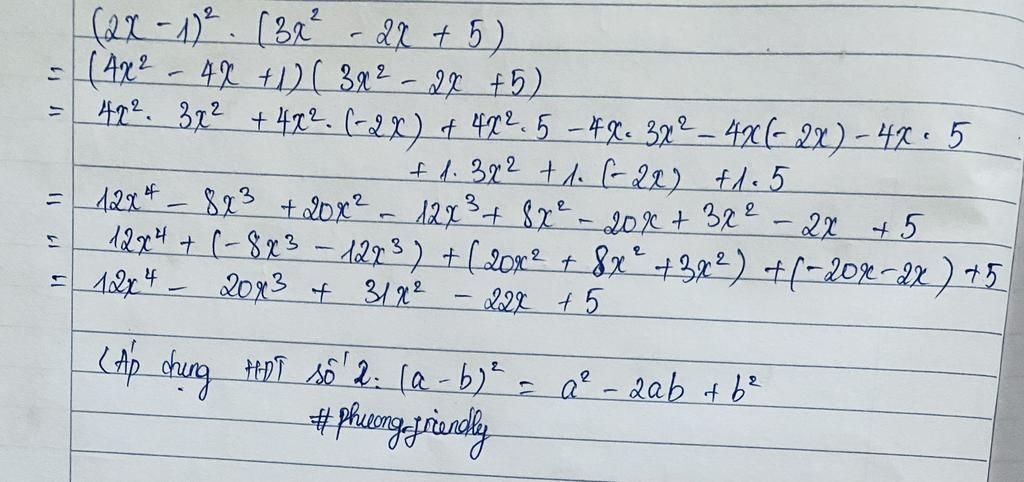 (2x - 1)² . (3x² - 2x + 5)
= (4x² - 4x + 1)(3x² - 2x + 5)
= 4x² . 3x² + 4x² . (-2x) + 4x² . 5 - 4x . 3x² - 4x(-2x) - 4x . 5
+ 1 . 3x² + 1 . (-2x) + 1 . 5
= 12x⁴ - 8x³ + 20x² - 12x³ + 8x² - 20x + 3x² - 2x + 5
= 12x⁴ + (-8x³ - 12x³) + (20x² + 8x² + 3x²) + (-20x - 2x) + 5
= 12x⁴ - 20x³ + 31x² - 22x + 5
(Áp dụng HĐT số 2: (a - b)² = a² - 2ab + b²
#phuong.friendly